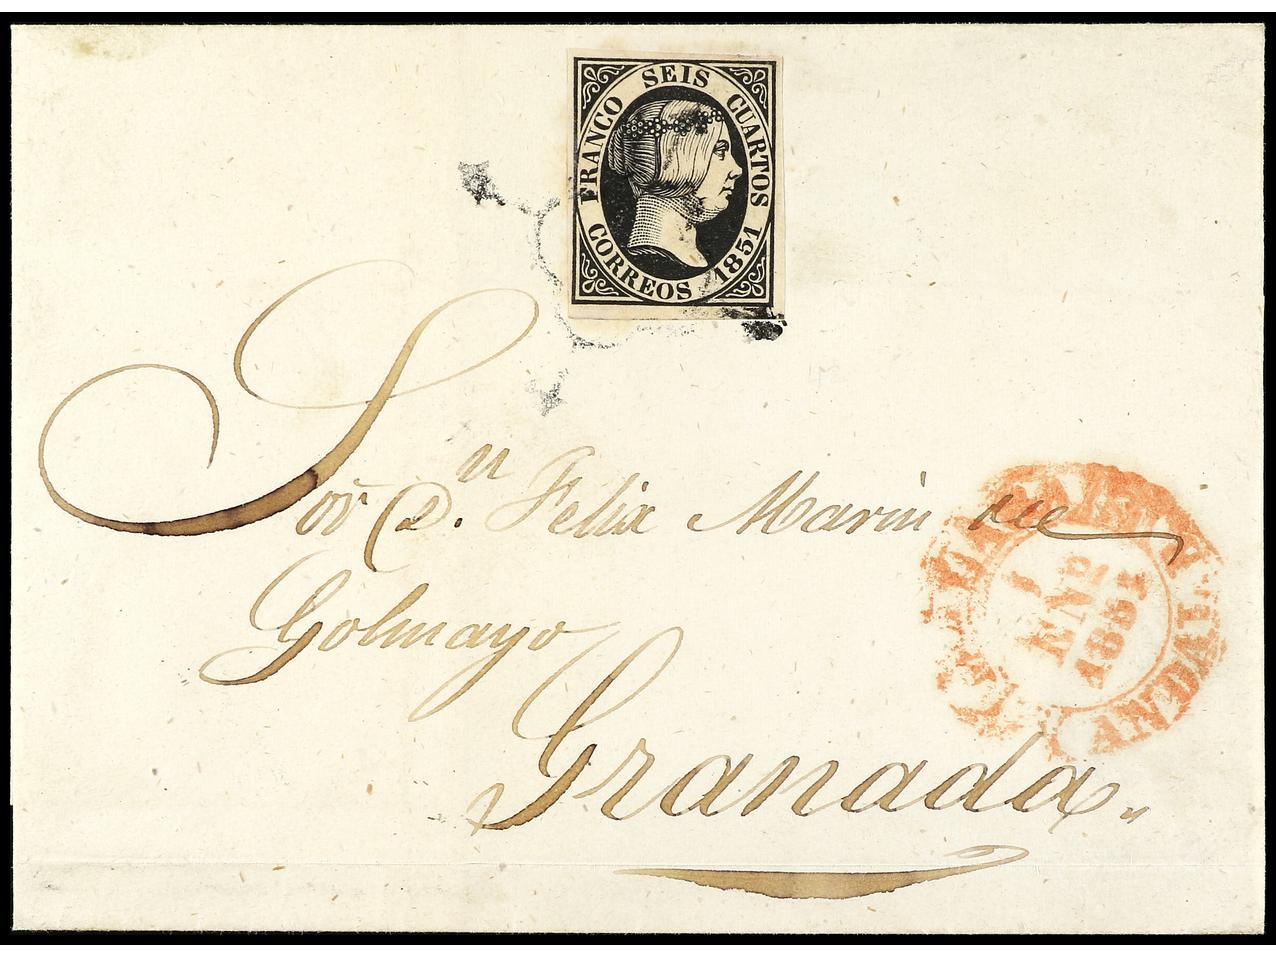 FRANCO SEIS CUARTOS
CORREOS 1851
Sor. Dn. Felix Marin de
Golmayo
Granada.
1
ENE
1851
ANDAL